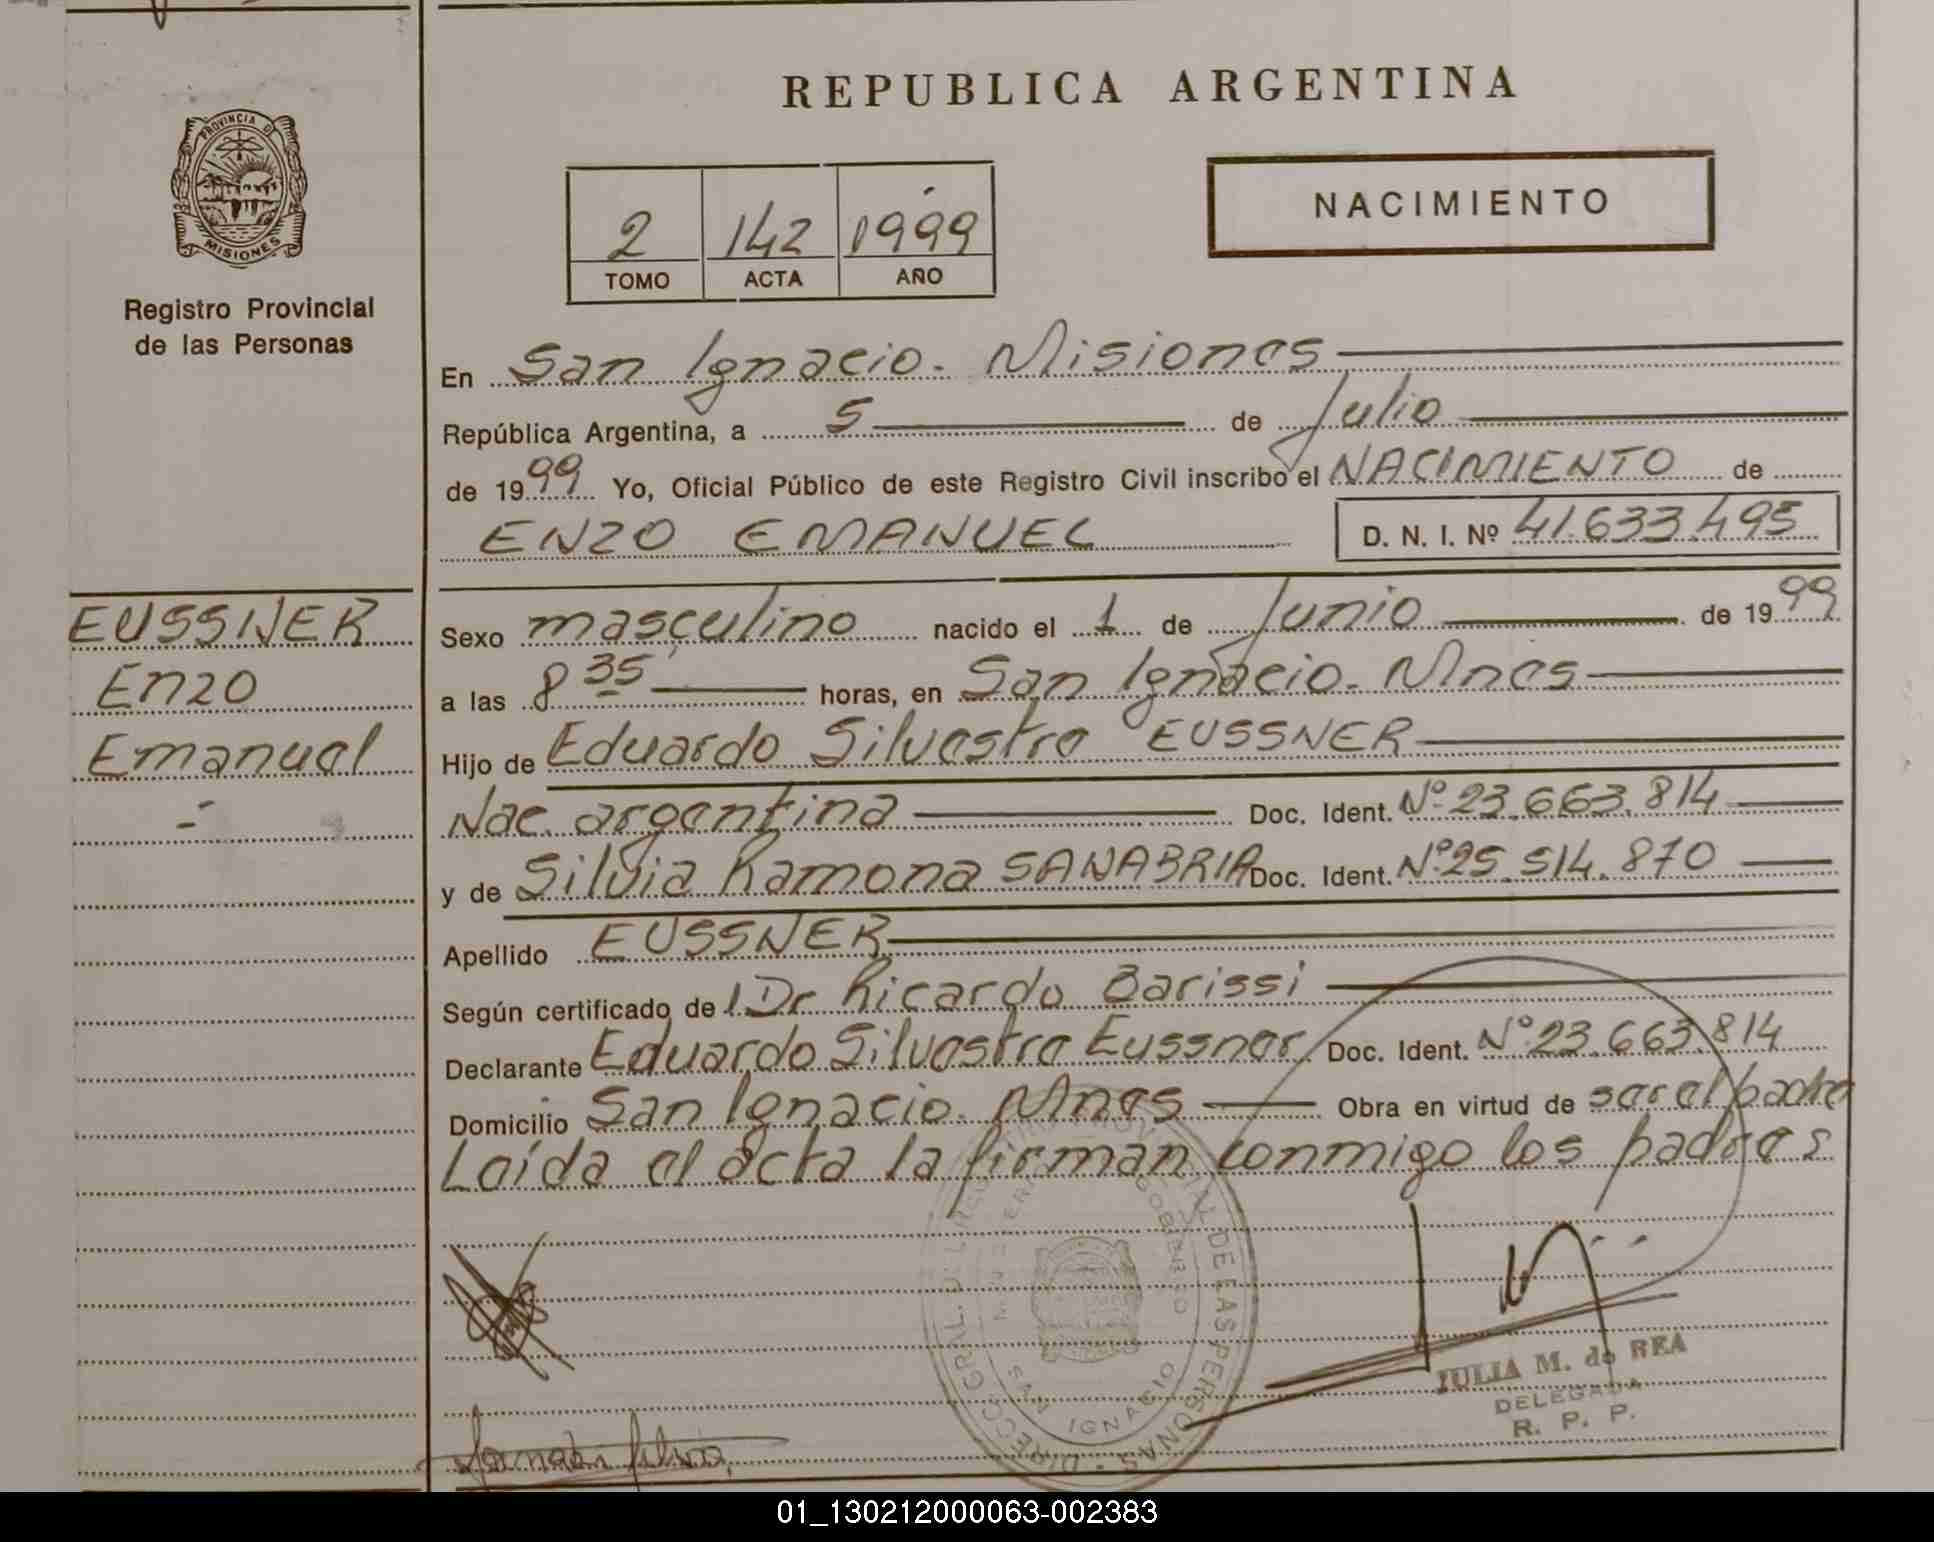 REPUBLICA ARGENTINA
PROVINCIA DE
MISIONES
Registro Provincial
de las Personas
2 142 1999
TOMO ACTA AÑO
NACIMIENTO
En San Ignacio. Misiones
República Argentina, a 5 de Julio
de 1999 Yo, Oficial Público de este Registro Civil inscribo el NACIMIENTO de
ENZO EMANUEL D. N. I. Nº 41.633.495
EUSSNER
Enzo
Emanuel
Sexo masculino nacido el 1 de Junio de 1999
a las 8 35 horas, en San Ignacio. Mnes
Hijo de Eduardo Silvestre EUSSNER
Nac. argentina Doc. Ident. Nº 23.663.814
y de Silvia Ramona SANABRIA Doc. Ident. Nº 25.514.870
Apellido EUSSNER
Según certificado de Dr Ricardo Barissi
Declarante Eduardo Silvestre Eussner Doc. Ident. Nº 23.663.814
Domicilio San Ignacio. Mnes Obra en virtud de ser el padre
Leída el acta la firman conmigo los padres
SAN IGNACIO
DE LAS PERSONAS
JULIA M. de REA
DELEGADA
R. P. P.
01_130212000063-002383